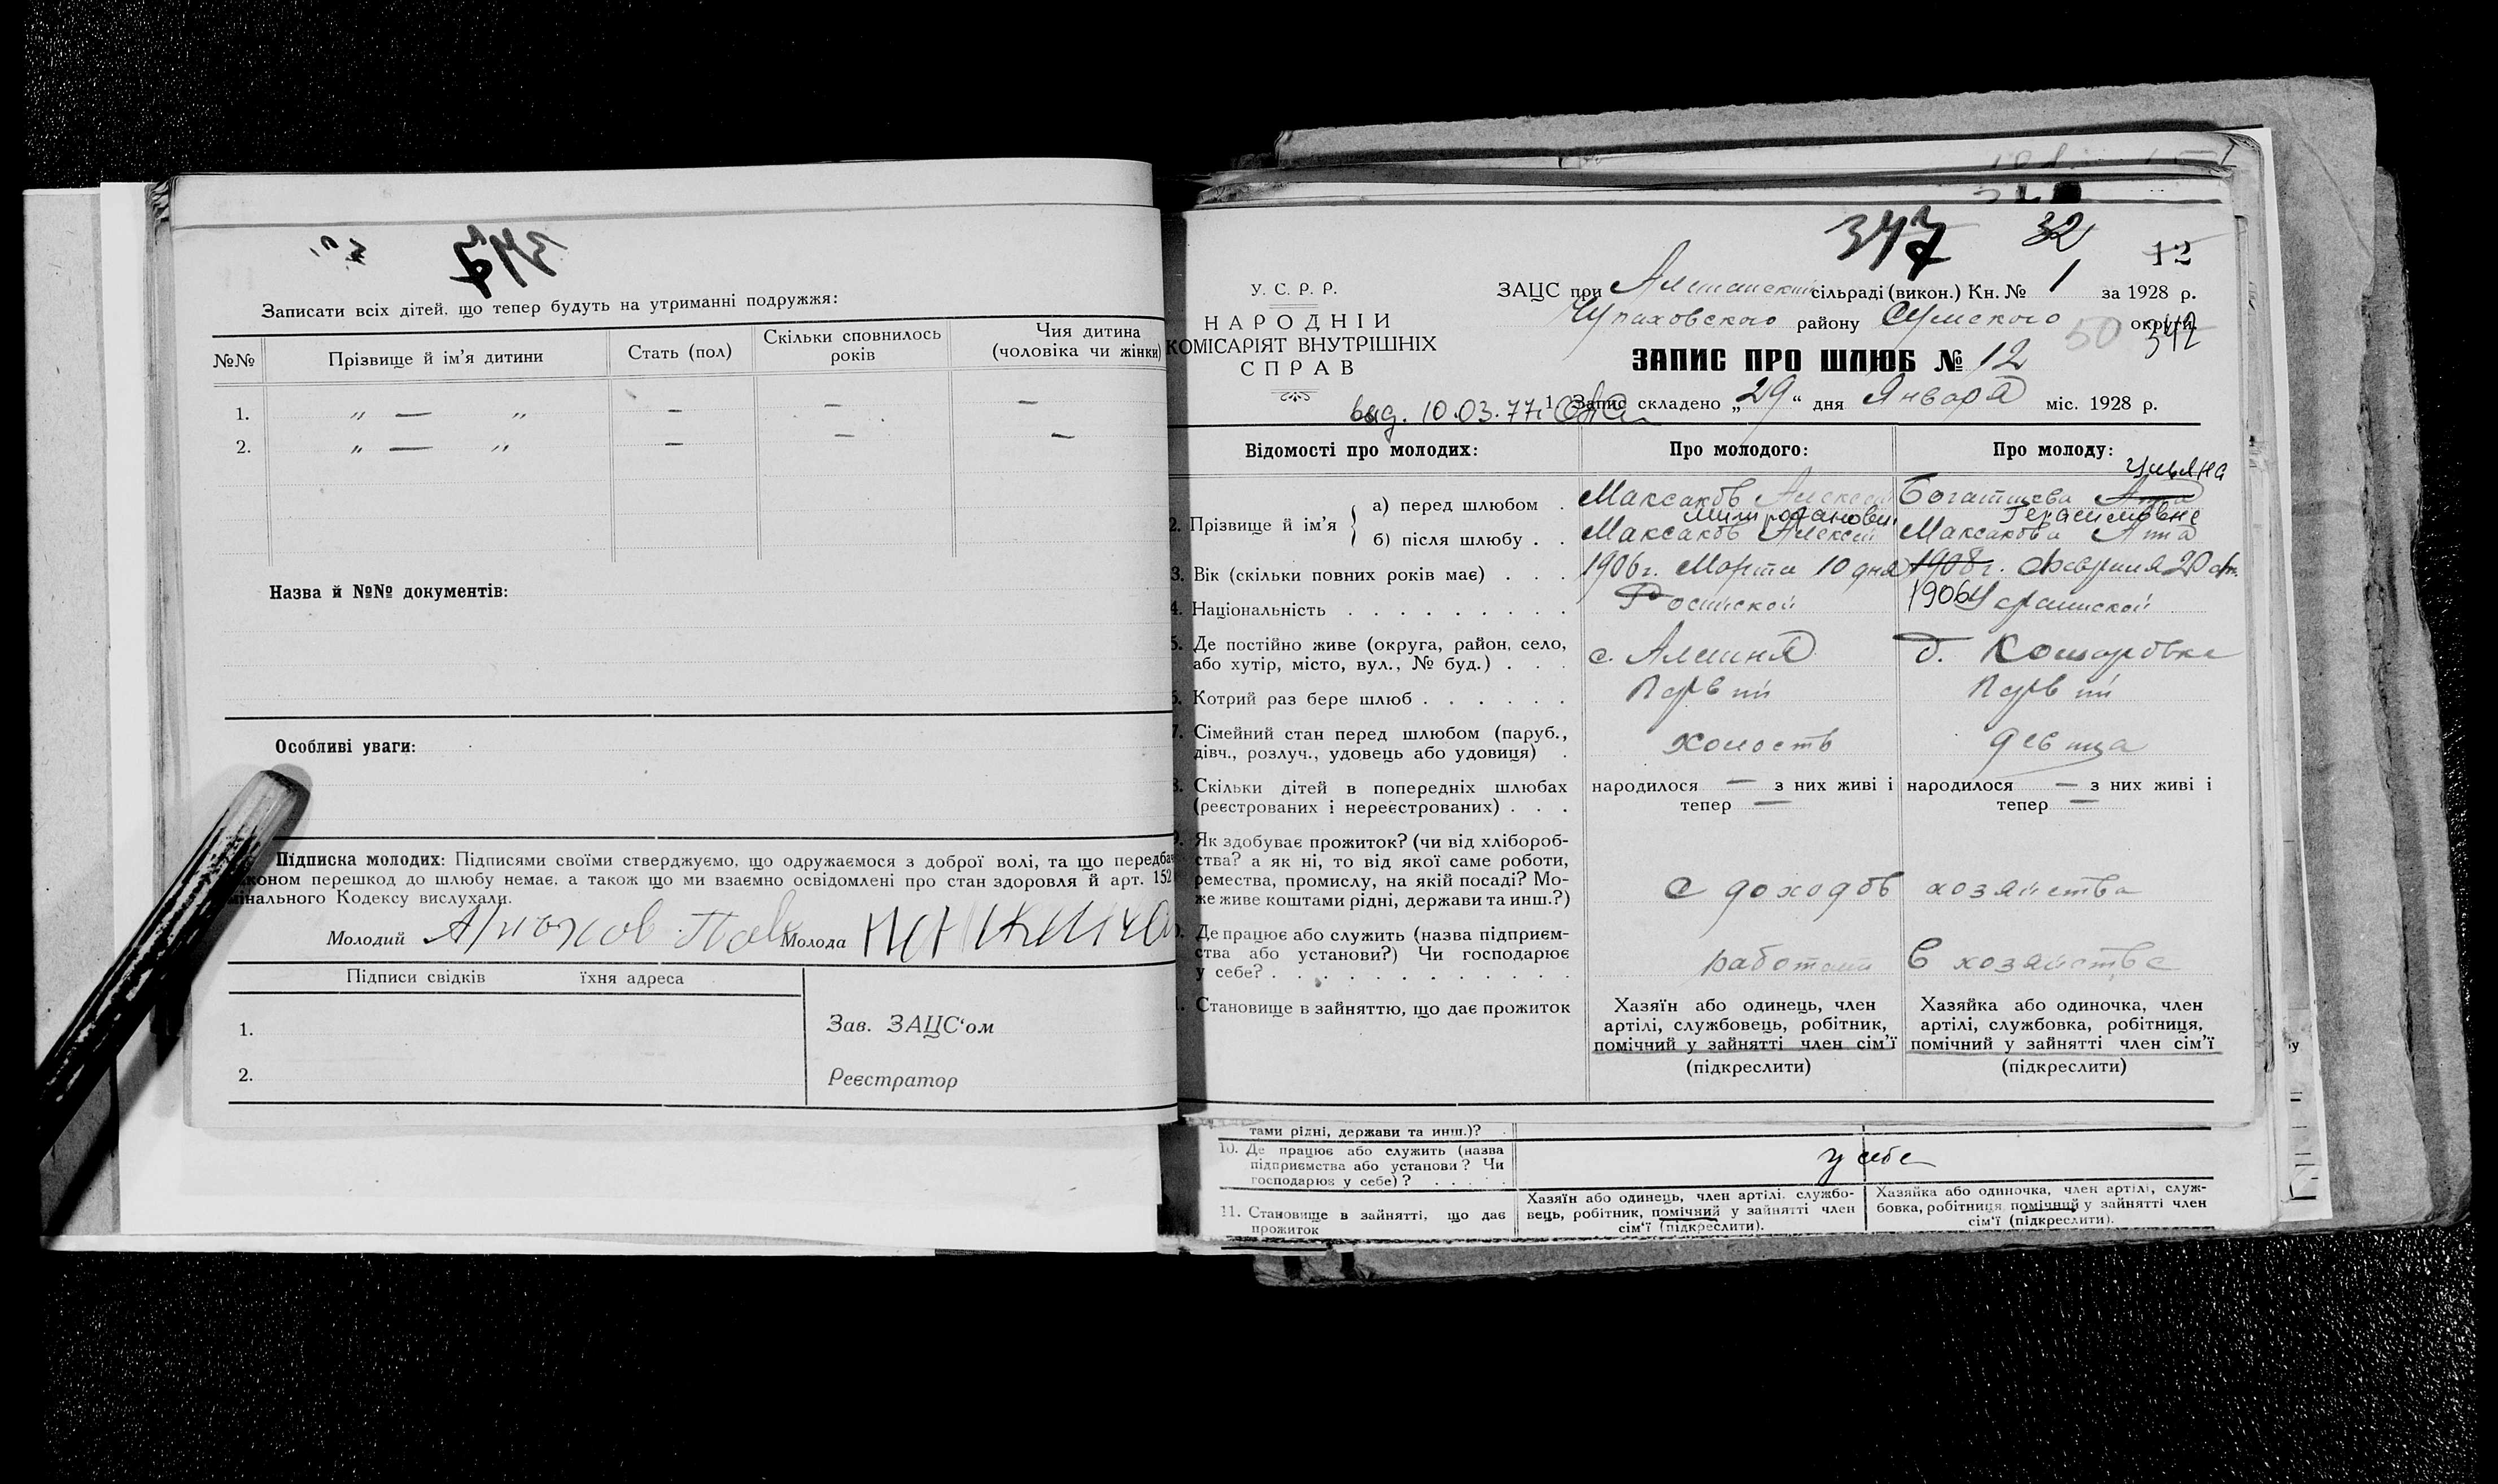 347
Записати всіх дітей, що тепер будуть на утриманні подружжя:
№№ Прізвище й ім'я дитини Стать (пол) Скільки сповнилось років Чия дитина (чоловіка чи жінки)
1. „ — „ — — —
2. „ — „ — — —
Назва й №№ документів:
Особливі уваги:
Підписка молодих: Підписями своїми стверджуємо, що одружаємося з доброї волі, та що передба
коном перешкод до шлюбу немає, а також що ми взаємно освідомлені про стан здоровля й арт. 152
мінального Кодексу вислухали.
Молодий Молода
Підписи свідків їхня адреса
1.
2.
Зав. ЗАЦС'ом
Реєстратор
347 32 12
У. С. Р. Р.
НАРОДНІЙ
КОМІСАРІЯТ ВНУТРІШНІХ
СПРАВ
ЗАЦС при сільраді (викон.) Кн. № 1 за 1928 р.
Чупаховского району Сумского округи
50 342
ЗАПИС ПРО ШЛЮБ № 12
10.03.77г.
1. Запис складено „29“ дня Января міс. 1928 р.
Відомості про молодих: Про молодого: Про молоду:
Ульяна
2. Прізвище й ім'я
а) перед шлюбом . Максаков Алексей Богатирева Анна
Митрофанович Герасимовне
б) після шлюбу . . Максаков Алексей Максакова Анна
3. Вік (скільки повних років має) . . . 1906г. Марта 10 дня 1908г. Февраля 20 дн.
1906
4. Національність . . . . . . . . . Росийской Украинской
5. Де постійно живе (округа, район, село,
або хутір, місто, вул., № буд.) . . . с. Алешня д. Комаровка
6. Котрий раз бере шлюб . . . . . . Первий Первий
7. Сімейний стан перед шлюбом (паруб.,
дівч., розлуч., удовець або удовиця) . холость девица
8. Скільки дітей в попередніх шлюбах
(реєстрованих і нереєстрованих) . . .
народилося — з них живі і тепер —
народилося — з них живі і тепер —
9. Як здобуває прожиток? (чи від хлібороб-
ства? а як ні, то від якої саме роботи,
ремества, промислу, на якій посаді? Мо-
же живе коштами рідні, держави та инш.?)
с доходов хозяйства
10. Де працює або служить (назва підприєм-
ства або установи?) Чи господарює
у себе? . . . . . . . . . . . .
в хозяйстве
11. Становище в зайняттю, що дає прожиток
Хазяїн або одинець, член
артілі, службовець, робітник,
помічний у зайнятті член сім'ї
(підкреслити)
Хазяйка або одиночка, член
артілі, службовка, робітниця,
помічний у зайнятті член сім'ї
(підкреслити)
тами рідні, держави та инш.)?
10. Де працює або служить (назва
підприємства або установи? Чи
господарює у себе)? . . . . .
у себе
11. Становище в зайнятті, що дає
прожиток
Хазяїн або одинець, член артілі, службо-
вець, робітник, помічний у зайнятті член
сім'ї (підкреслити).
Хазяйка або одиночка, член артілі, служ-
бовка, робітниця, помічний у зайнятті член
сім'ї (підкреслити).